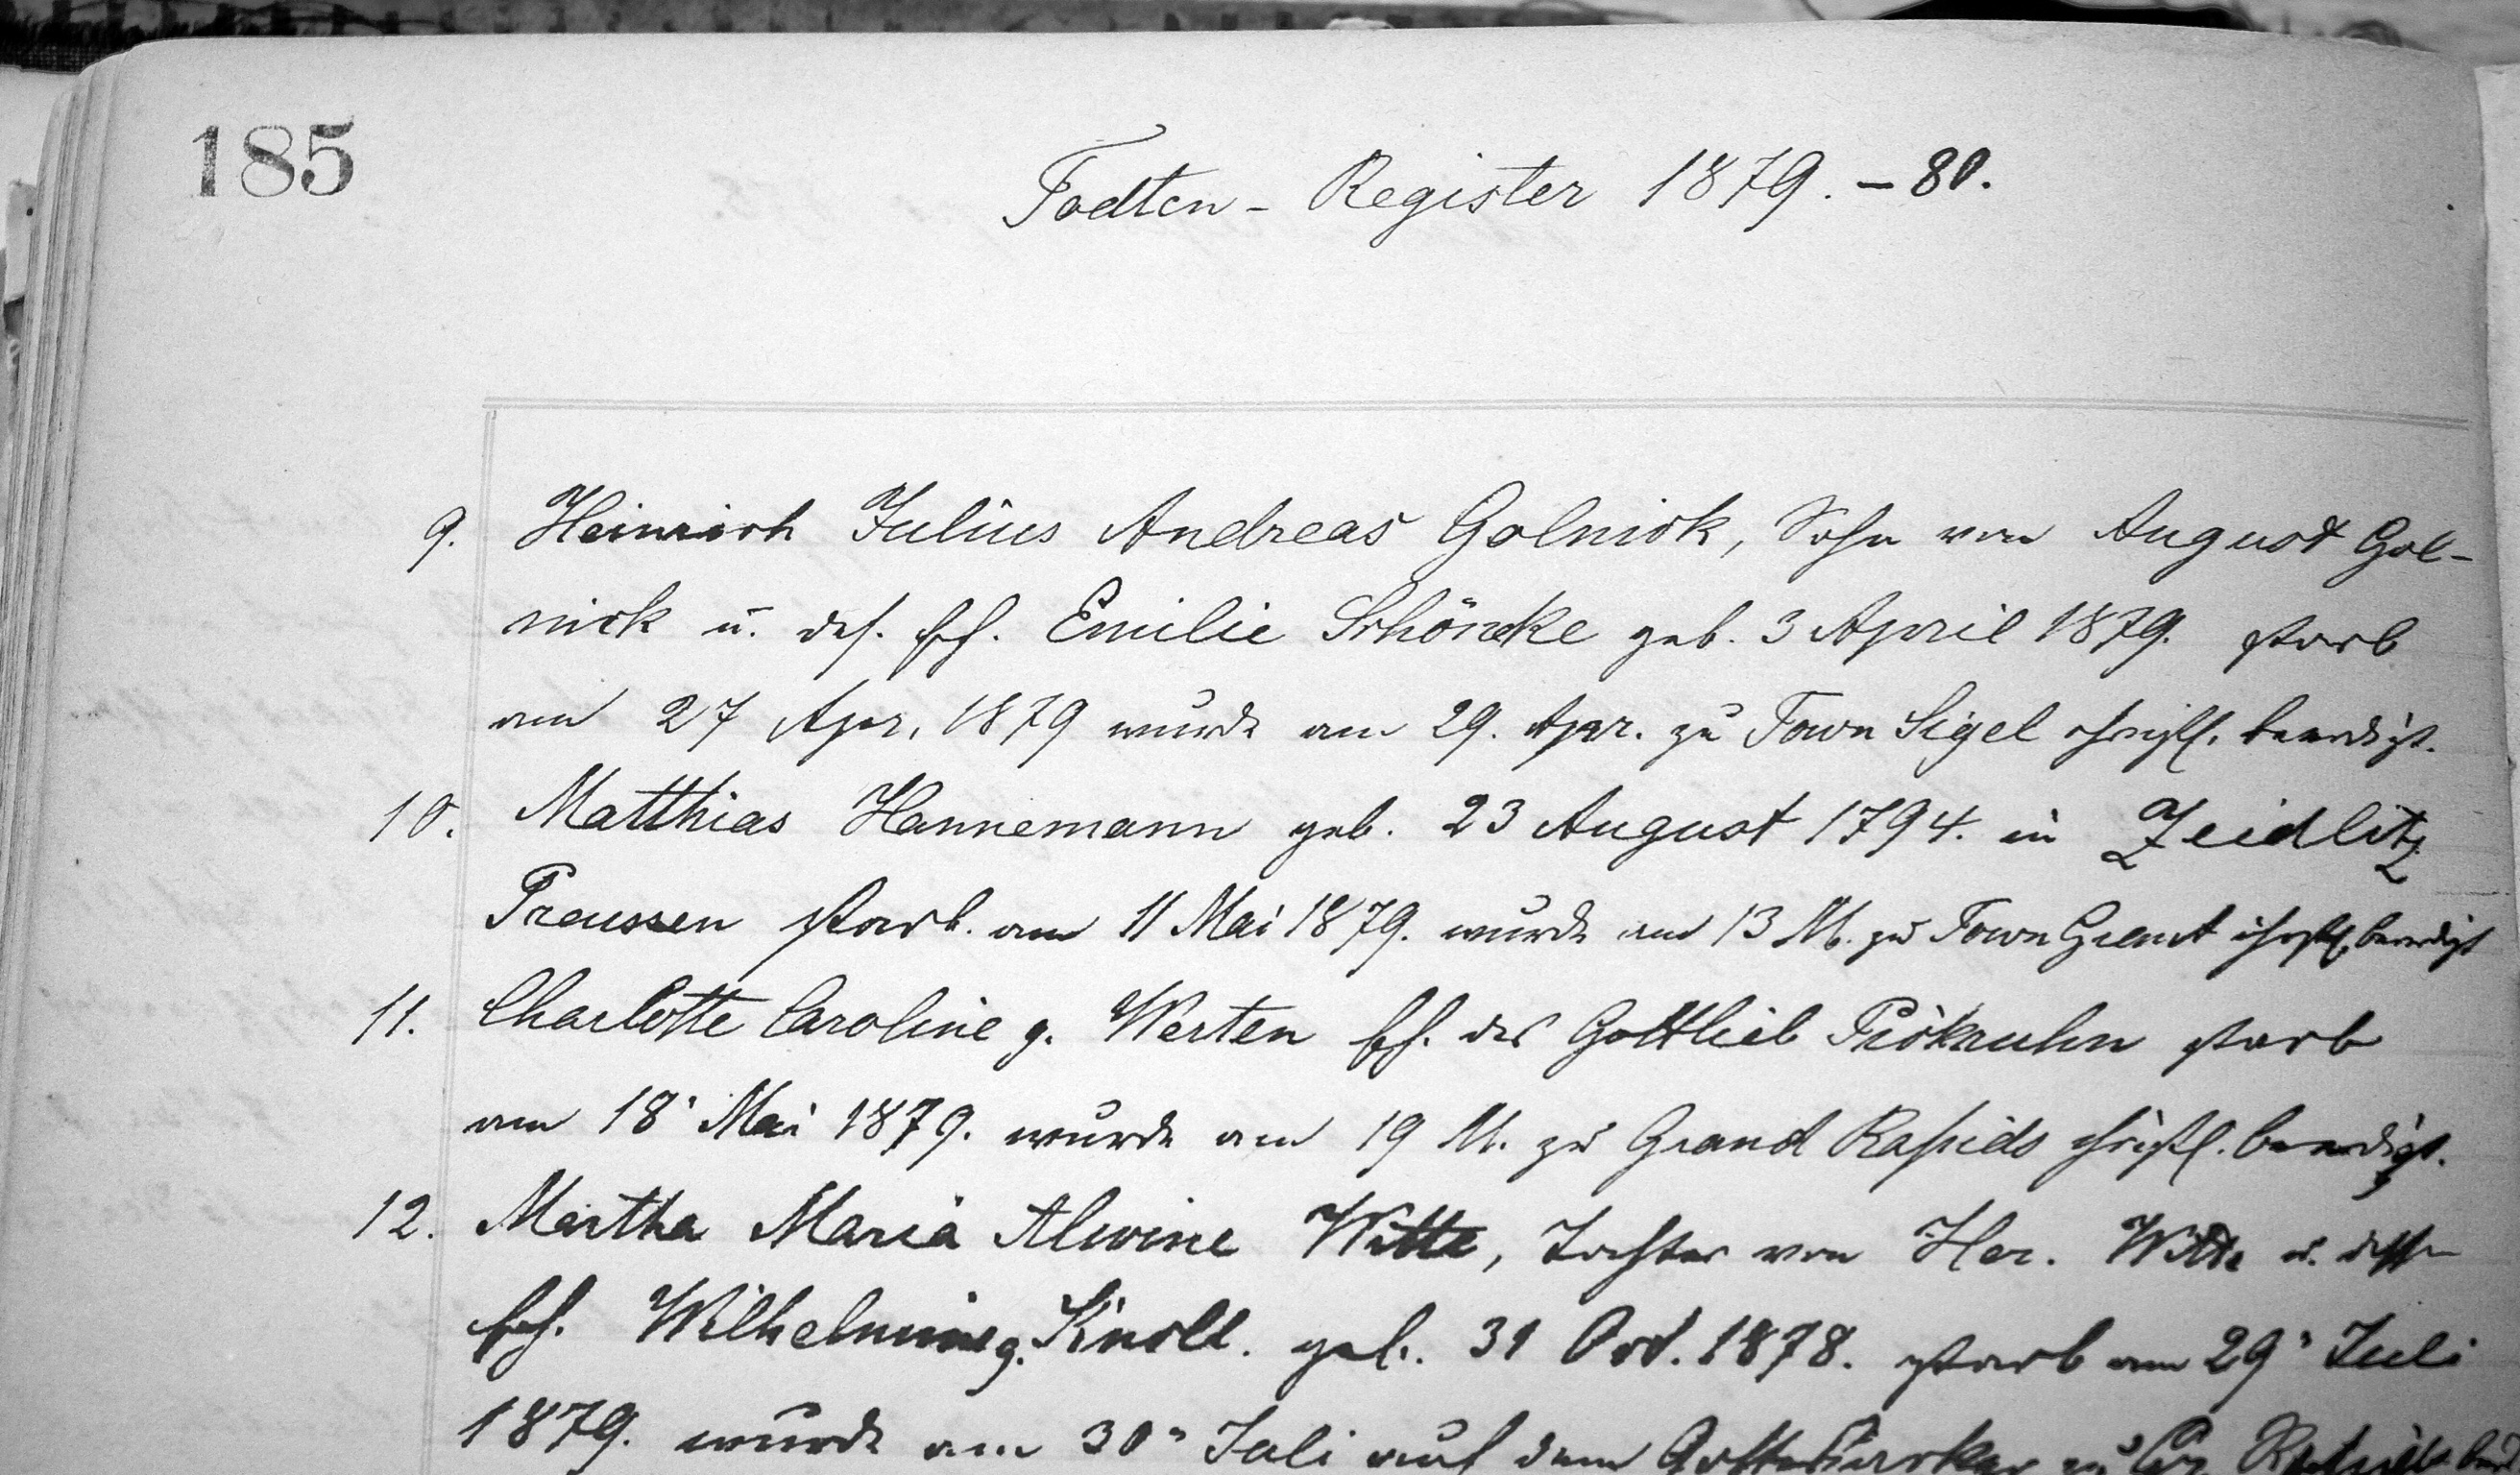 185
Todten-Register 1879.-80.
9. Heinrich Julius Andreas Golnick, Sohn von August Gol-
nick u. des. Ehf. Emilie Schöncke geb. 3 April 1879. starb
am 27 Apr. 1879 wurde am 29. Apr. zu Town Sigel christl. beerdigt.
10. Matthias Hannemann geb. 23 August 1794. in Zeidlitz
Preussen starb. am 11 Mai 1879. wurde am 13 M. zu Town Grant christl. beerdigt
11. Charlotte Caroline g. Werten Ehf. des Gottlieb starb
am 18 Mai 1879. wurde am 19 M. zu Grand Rapids christl. beerdigt.
12. Martha Maria Alwine Witte, Tochter von Her. Witte u. dessen
Ehf. Wilhelmine g. Knoll. geb. 31 Oct. 1878. starb am 29" Juli
1879. wurde am 30" Juli auf dem Gottesacker zu Gr.